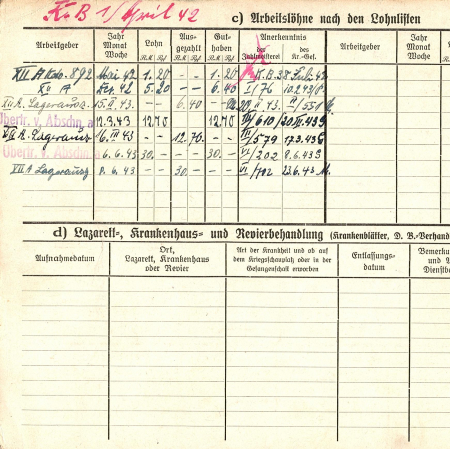 K. B 1/April 42
c) Arbeitslöhne nach den Lohnlisten
Arbeitgeber
Jahr
Monat
Woche
Lohn
R.M. Pf.
Aus-
gezahlt
R.M. Pf.
Gut-
haben
R.M. Pf.
Anerkenntnis
des
Zahlmeisters
des Kr.-Gef.
Arbeitgeber
Jahr
Monat
Woche
Lohn
R.M. Pf.
XII A Kdo. 892 Mai 42 1. 20 - - 1. 20 K.B. 38 Juli 42
XII A 42 5. 20 - - 6. 40 I/76
XII A. Lagerausz. 15. II. 43. - - 6. 40 II. 43. II/551
Übertr. v. Abschn. a 12.3.43 12 70 - - 12 70 III/610/20 III. 43
VII A. Lagerausz. 16. III 43. - - 12. 70. - - III/579 17.3.43
Übertr. v. Abschn. a 6. 6. 43 30. - - 30. - VI/202 8. 6. 43
VII A Lagerausz 8. 6. 43 - - 30. - - - VI/702 23.6.43
d) Lazarett-, Krankenhaus- und Revierbehandlung (Krankenblätter, D. B.-Verhand
Aufnahmedatum
Ort,
Lazarett, Krankenhaus
oder Revier
Art der Krankheit und ob auf
dem Kriegsschauplatz oder in der
Gefangenschaft erworben
Entlassungs-
datum
Bemerku
und U
Dienstbe